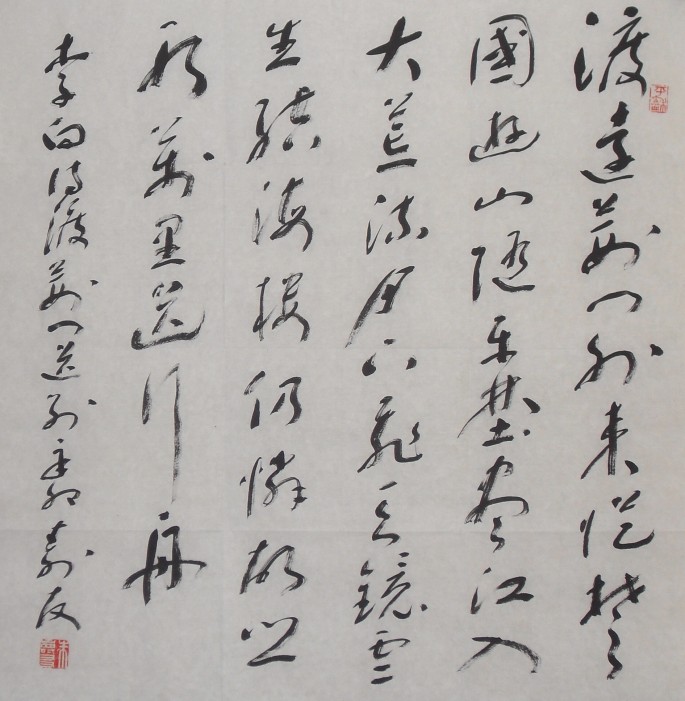 渡遠荊門外来從楚
國遊山隨平埜尽江入
大荒流月下飛天鏡雲
生結海楼仍憐故鄉
水萬里送行舟
李白詩渡荊門送别辛卯壽友